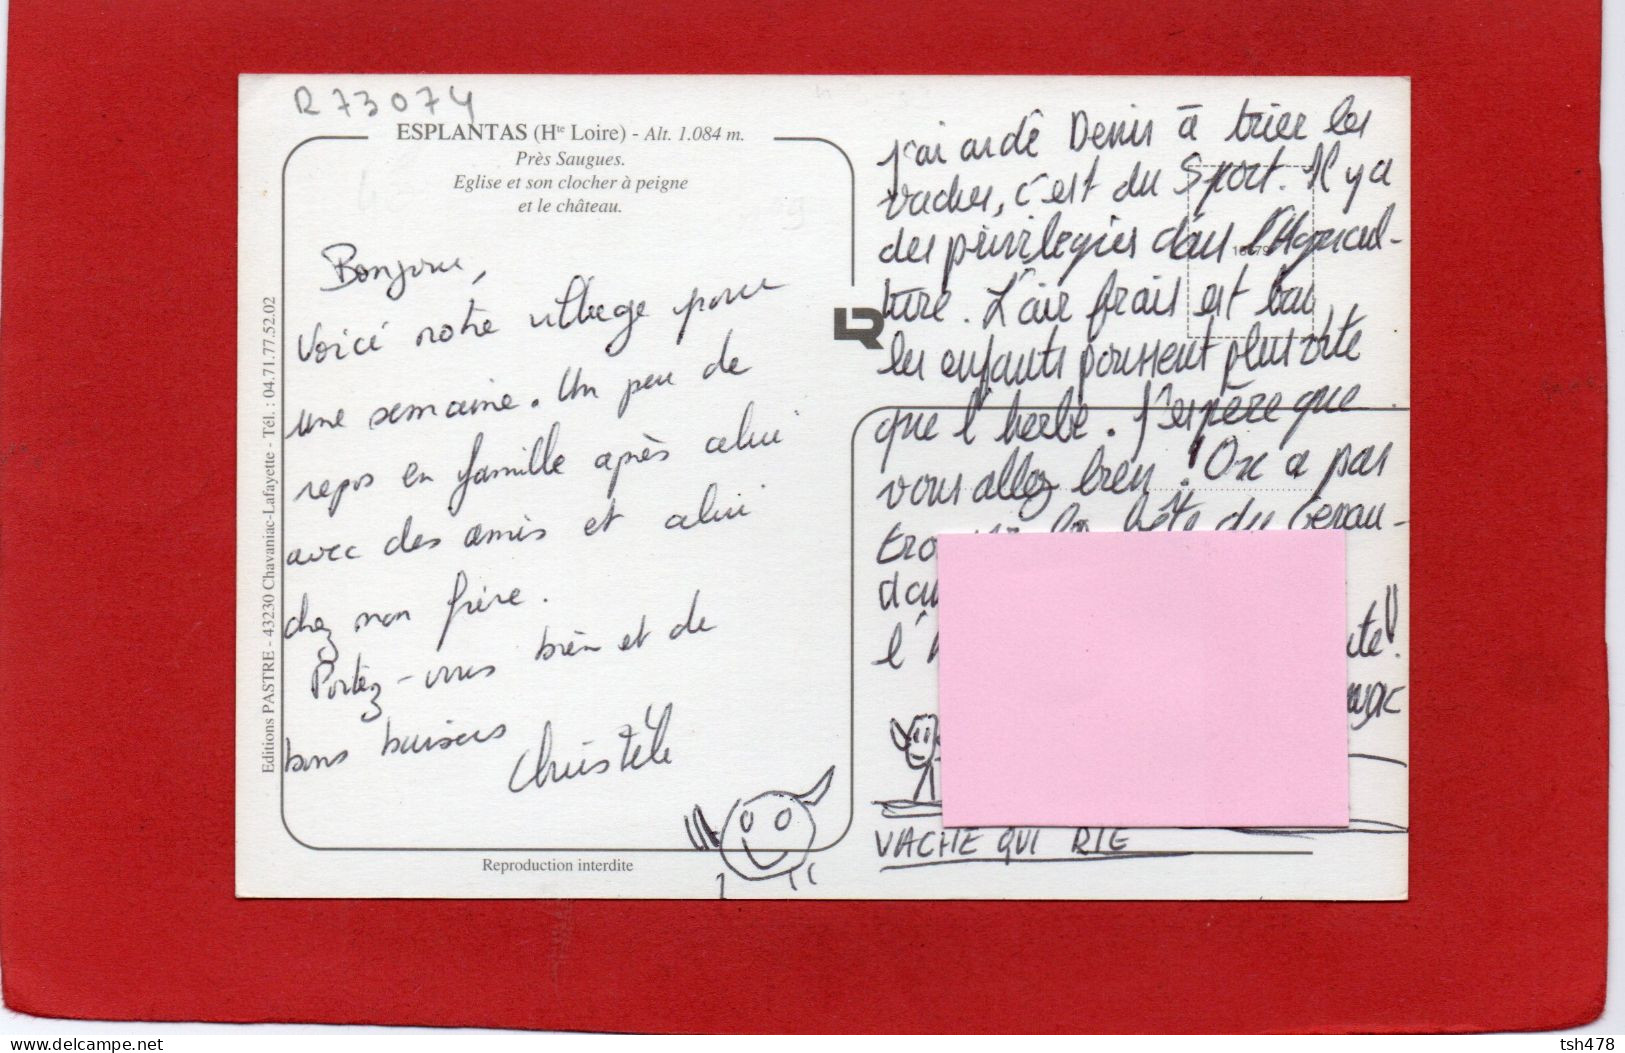 R 73074
ESPLANTAS (Hte Loire) - Alt. 1.084 m.
Près Saugues.
Eglise et son clocher à peigne
et le château.
Editions PASTRE - 43230 Chavaniac-Lafayette - Tél. : 04.71.77.52.02
Bonjour,
Voici notre village pour
une semaine. Un peu de
repos en famille après celui
avec des amis et celui
chez mon frère.
Portez-vous bien et de
bons baisers
Christèle
Reproduction interdite
LR
J'ai aidé Denis à trier les
vaches, c'est du Sport. Il y a
des privilégiés dans l'Agricul-
ture. L'air frais est bon
les enfants poussent plus vite
que l'herbe. J'espère que
vous allez bien ! On a pas
la bête du Gévau-
dan
l'
VACHE QUI RIE
delcampe.net
tsh478